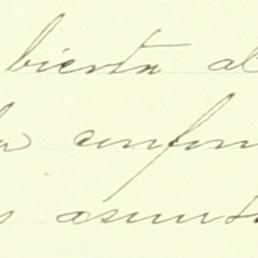 bierta al
la confor
s asunto